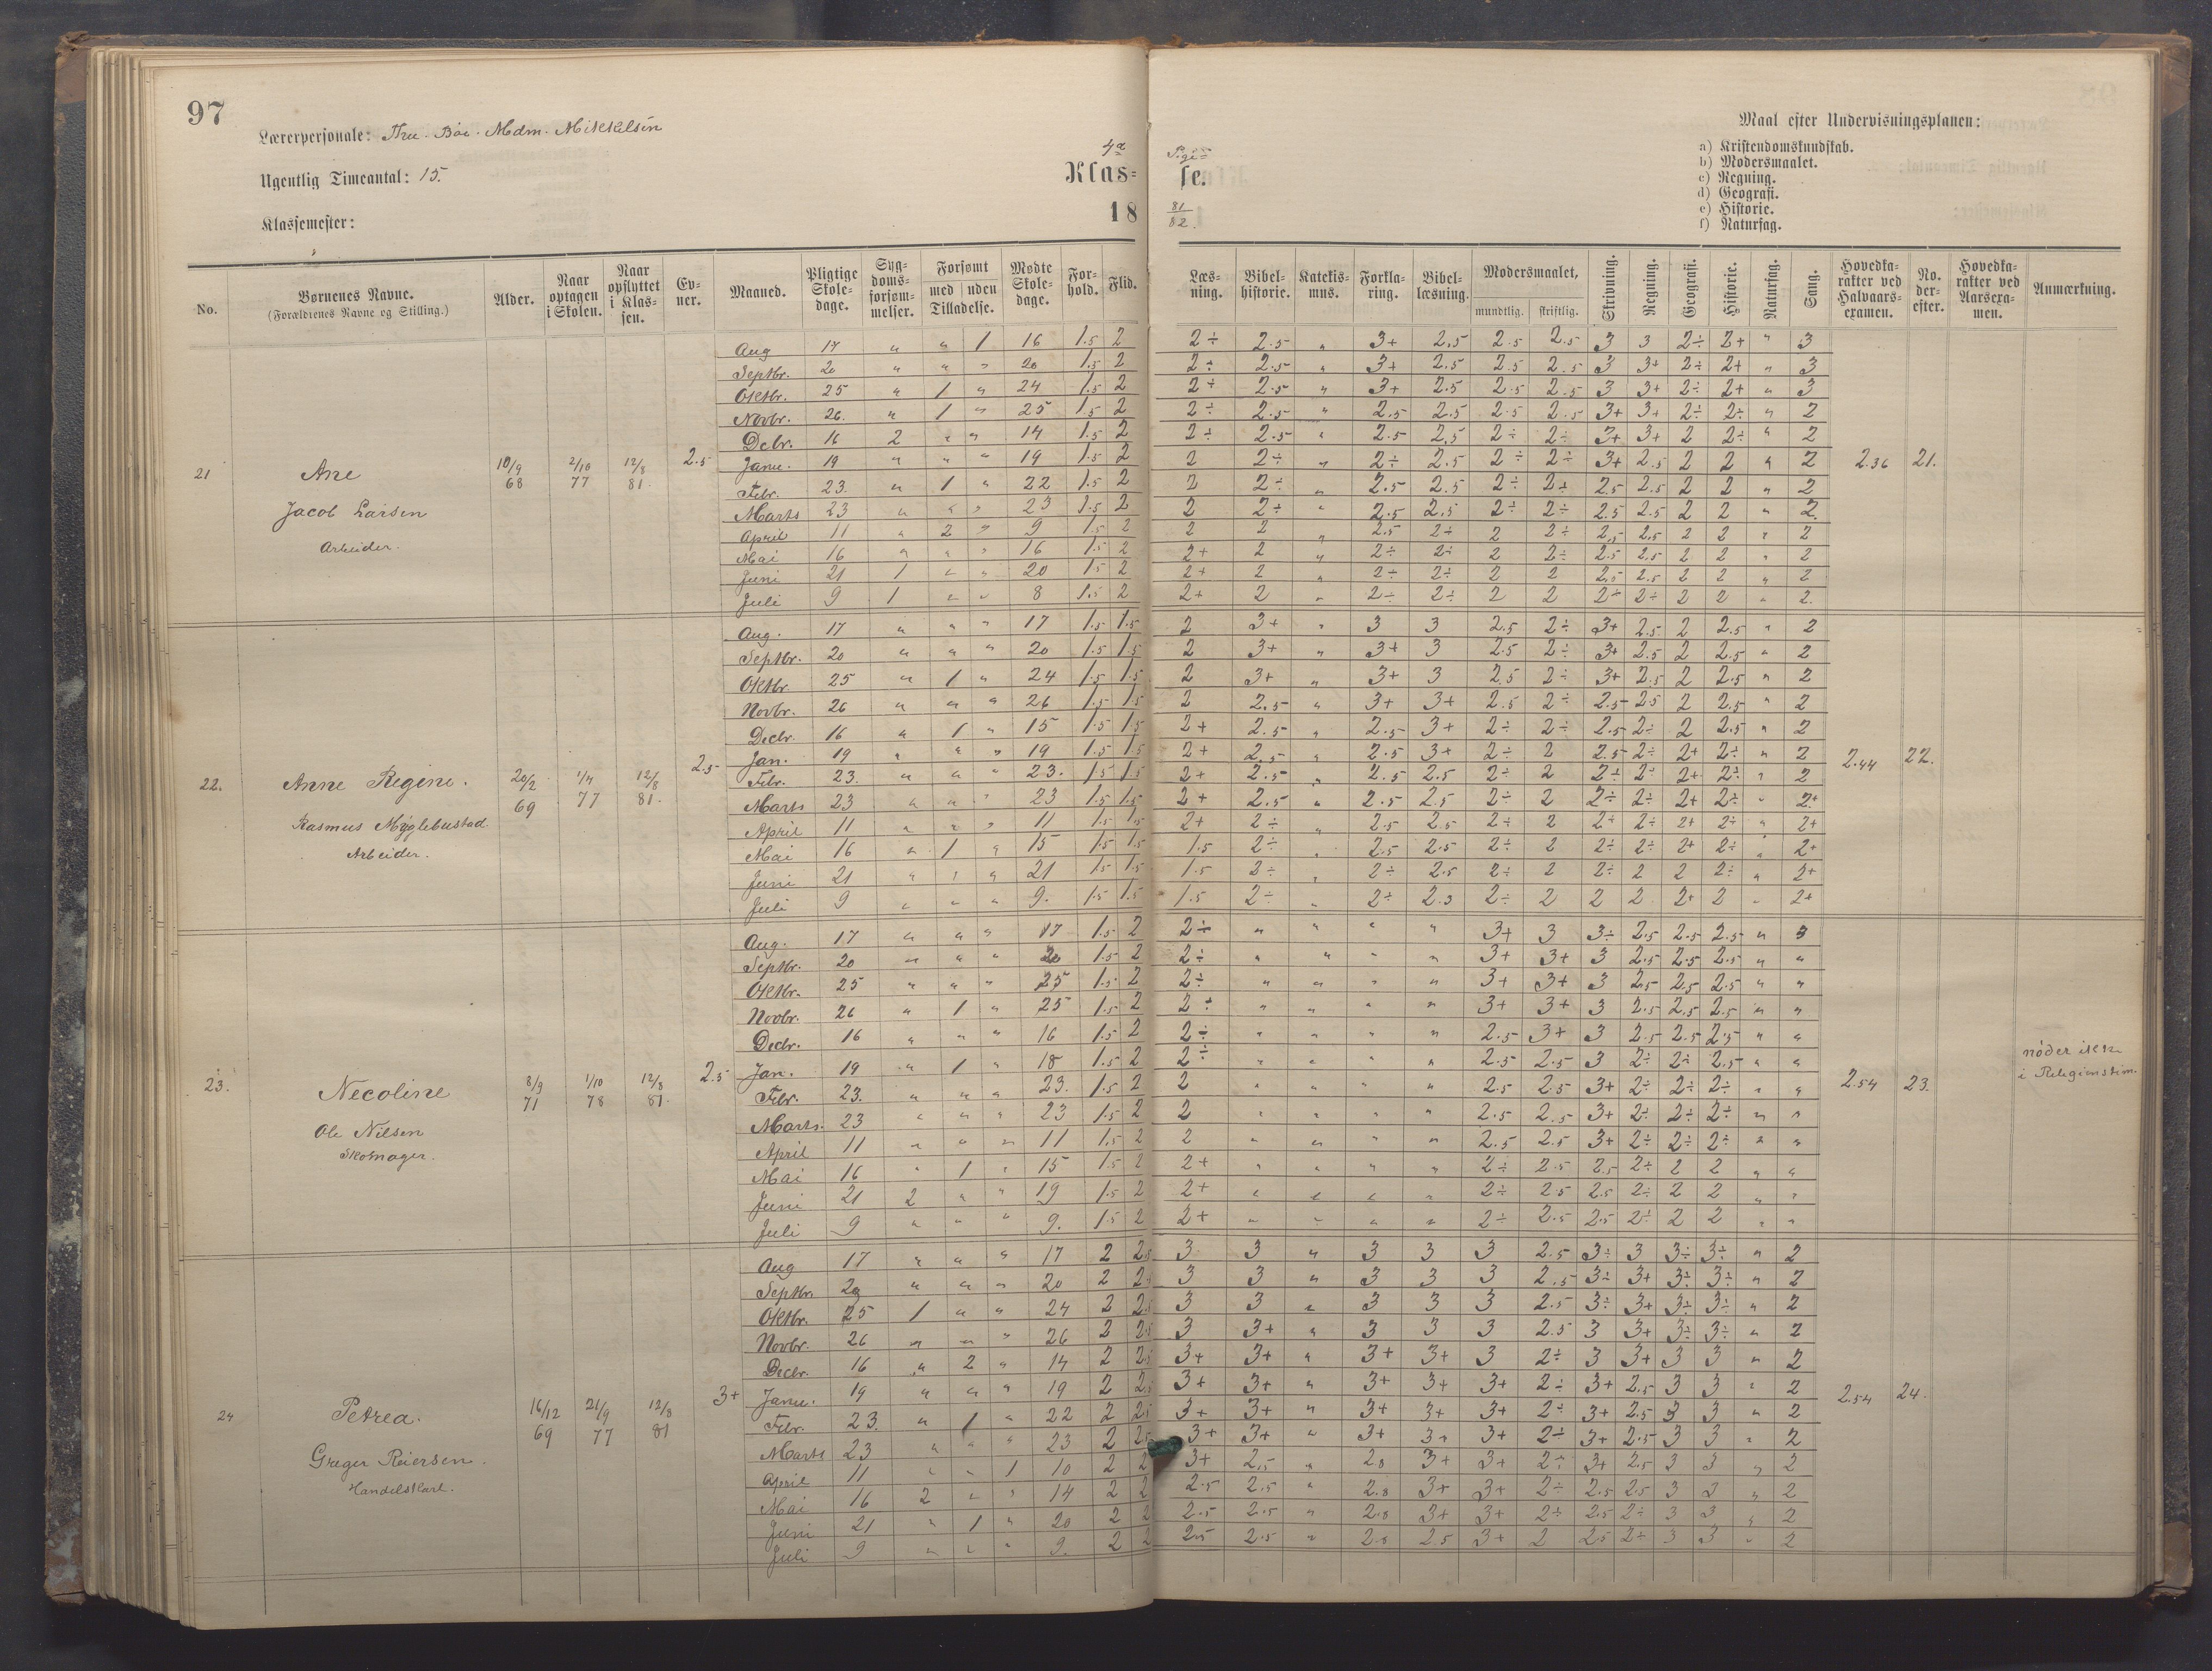 97
Lærerpersonale: Thu. Bøe. Mdm. Mikkelsen
Ugentlig Timeantal: 15.
Klassemester:
4a Pige=
Klas= se.
18 81/82.
Maal efter Undervisningsplanen:
a) Kristendomskundskab.
b) Modersmaalet.
c) Regning.
d) Geografi.
e) Historie.
f) Naturfag.
No. | Børnenes Navne. (Forældrenes Navne og Stilling.) | Alder. | Naar optagen i Skolen. | Naar opflyttet i Klassen. | Evner. | Maaned. | Pligtige Skoledage. | Sygdomsforsømmelser. | Forsømt med Tilladelse. | uden Tilladelse. | Mødte Skoledage. | Forhold. | Flid. | Læsning. | Bibelhistorie. | Katekismus. | Forklaring. | Bibellæsning. | Modersmaalet, mundtlig. | skriftlig. | Skrivning. | Regning. | Geografi. | Historie. | Naturfag. | Sang. | Hovedkarakter ved Halvaarsexamen. | No. derefter. | Hovedkarakter ved Aarsexamen. | Anmærkning.
21 Ane 10/9 68 2/10 77 12/8 81. 2.5 2.36 21.
Jacob Larsen
Arbeider.
Aug 17 " " 1 16 1.5 2 2÷ 2.5 " 3+ 2.5 2.5 2.5 3 3 2÷ 2+ " 3
Septbr. 20 " " " 20 1.5 2 2÷ 2.5 " 3+ 2.5 2.5 2.5 3 3+ 2÷ 2+ " 3
Oktbr. 25 " 1 " 24 1.5 2 2÷ 2.5 " 3+ 2.5 2.5 2.5 3 3+ 2÷ 2+ " 3
Novbr. 26. " 1 " 25 1.5 2 2÷ 2.5 " 2.5 2.5 2.5 2.5 3+ 3+ 2÷ 2÷ " 2
Debr. 16 2 " " 14 1.5 2 2÷ 2.5 " 2.5 2.5 2÷ 2÷ 3+ 3+ 2 2÷ " 2
Janu. 19 " " " 19 1.5 2 2 2÷ " 2÷ 2.5 2÷ 2÷ 3+ 2.5 2 2 " 2
Febr. 23. " 1 " 22 1.5 2 2 2÷ " 2.5 2.5 2÷ 2÷ 2.5 2.5 2 2 " 2
Marts 23 " " " 23 1.5 2 2 2÷ " 2.5 2.5 2÷ 2÷ 2.5 2.5 2 2 " 2.
April 11 " 2 " 9 1.5 2 2 2 " 2.5 2÷ 2 2÷ 2.5 2.5 2 2 " 2
Mai 16 " " " 16 1.5 2 2+ 2 " 2÷ 2÷ 2 2÷ 2.5 2.5 2 2 " 2
Juni 21 1 " " 20 1.5 2 2+ 2 " 2÷ 2÷ 2 2 2.5 2.5 2 2 " 2
Juli 9 1 " " 8 1.5 2 2+ 2 " 2÷ 2÷ 2 2 2÷ 2÷ 2 2 " 2.
22. Anne Regine. 20/2 69 1/4 77 12/8 81. 2.5 2.44 22.
Rasmus Myglebustad.
Arbeider.
Aug. 17 " " " 17 1.5 1.5 2 3+ " 3 3 2.5 2÷ 3+ 2.5 2 2.5 " 2
Septbr. 20 " " " 20 1.5 1.5 2 3+ " 3+ 3 2.5 2÷ 3+ 2.5 2 2.5 " 2
Oktbr 25 " 1 " 24 1.5 1.5 2 3+ " 3+ 3 2.5 2÷ 3+ 2.5 2 2.5 " 2
Novbr. 26 " " " 26 1.5 1.5 2 2.5 " 3+ 3+ 2.5 2÷ 2.5 2.5 2 2.5 " 2
Decbr. 16 " 1 " 15 1.5 1.5 2+ 2.5 " 2.5 3+ 2÷ 2÷ 2.5 2÷ 2 2.5 " 2
Jan. 19 " " " 19 1.5 1.5 2+ 2.5 " 2.5 3+ 2÷ 2 2.5 2÷ 2+ 2÷ " 2
Febr. 23. " " " 23. 1.5 1.5 2+ 2.5 " 2.5 2.5 2÷ 2 2÷ 2÷ 2+ 2÷ " 2
Marts 23 " " " 23 1.5 1.5 2+ 2.5 " 2.5 2.5 2÷ 2 2÷ 2÷ 2+ 2÷ " 2+
April 11 " " " 11 1.5 1.5 2+ 2÷ " 2.5 2.5 2÷ 2 2÷ 2÷ 2+ 2÷ " 2+
Mai 16 " 1 " 15 1.5 1.5 1.5 2÷ " 2.5 2.5 2÷ 2 2÷ 2÷ 2+ 2÷ " 2+
Juni 21 " " " 21 1.5 1.5 1.5 2÷ " 2÷ 2.5 2÷ 2 2÷ 2 2 2÷ " 2+
Juli 9 " " " 9. 1.5 1.5 1.5 2÷ " 2÷ 2.5 2÷ 2 2 2 2+ 2 " 2+
23. Necoline 8/9 71 1/10 78 12/8 81. 2.5 2.54 23. nöder ikke
Ole Nilsen i Religionstim.
Skomager.
Aug. 17 " " " 17 1.5 2 2÷ " " " " 3+ 3 3÷ 2.5 2.5 2.5 " 3
Septbr. 20 " " " 20 1.5 2 2÷ " " " " 3+ 3+ 3 2.5 2.5 2.5 " "
Oktbr. 25 " " " 25 1.5 2 2÷ " " " " 3+ 3+ 3 2.5 2.5 2.5 " "
Novbr. 26 " 1 " 25 1.5 2 2÷ " " " " 3+ 3+ 3 2.5 2.5 2.5 " "
Decbr. 16 " " " 16 1.5 2 2÷ " " " " 2.5 3+ 3 2.5 2.5 2.5 " "
Jan. 19 " 1 " 18 1.5 2 2÷ " " " " 2.5 2.5 3 2÷ 2÷ 2.5 " "
Febr. 23. " " " 23. 1.5 2 2 " " " " 2.5 2.5 3+ 2÷ 2÷ 2÷ " "
Marts. 23 " " " 23 1.5 2 2 " " " " 2.5 2.5 3+ 2÷ 2÷ 2÷ " "
April 11 " " " 11 1.5 2 2 " " " " 2.5 2.5 3+ 2÷ 2÷ 2÷ " "
Mai 16 " 1 " 15 1.5 2 2+ " " " " 2÷ 2.5 2.5 2÷ 2 2 " "
Juni 21 2 " " 19 1.5 2 2+ " " " " 2÷ 2.5 2.5 2÷ 2 2 " "
Juli 9 " " " 9. 1.5 2 2+ " " " " 2÷ 2.5 2.5 2÷ 2 2 " "
24 Petrea. 16/12 69 21/9 77 12/8 81 3+ 2.54 24.
Greger Reiersen.
Handelskarl.
Aug 17 " " " 17 2 2.5 3 3 " 3 3 3 2.5 3÷ 3 3÷ 3÷ " 2
Septbr 20 " " " 20 2 2.5 3 3 " 3 3 3 2.5 3÷ 3+ 3÷ 3÷ " 2
Oktbr. 25 1 " " 24 2 2.5 3 3 " 3 3 3 2.5 3÷ 3+ 3÷ 3÷ " 2
Novbr. 26 " " " 26 2 2.5 3 3+ " 3 3 3 2.5 3 3+ 3÷ 3÷ " 2
Decbr. 16 " 2 " 14 2 2.5 3+ 3+ " 3+ 3+ 3 2÷ 3 3+ 3 3 " 2
Janu. 19 " " " 19 2 2.5 3+ 3+ " 3+ 3+ 3+ 2÷ 3+ 2.5 3 3 " 2
Febr. 23. " 1 " 22 2 2.5 3+ 3+ " 3+ 3+ 3+ 2÷ 3+ 2.5 3 3 " 2
Marts 23 " " " 23 2 2.5 3+ 3+ " 3+ 3+ 3+ 2÷ 3+ 2.5 3 3 " 2
April 11 " " 1 10 2 2 3+ 2.5 " 2.8 3+ 3+ 2÷ 3+ 2.5 3 3 " 2
Mai 16 2 " " 14 2 2 2.5 2.5 " 2.8 3+ 3+ 2÷ 2.5 2.5 3 3 " 2
Juni 21 " 1 " 20 2 2 2.5 2.5 " 2.8 3+ 3+ 2÷ 2.5 2÷ 3 3 " 2
Juli 9 " " " 9. 2 2 2.5 2.5 " 2.8 2.5 3+ 2 2.5 2÷ 3 3 " 2